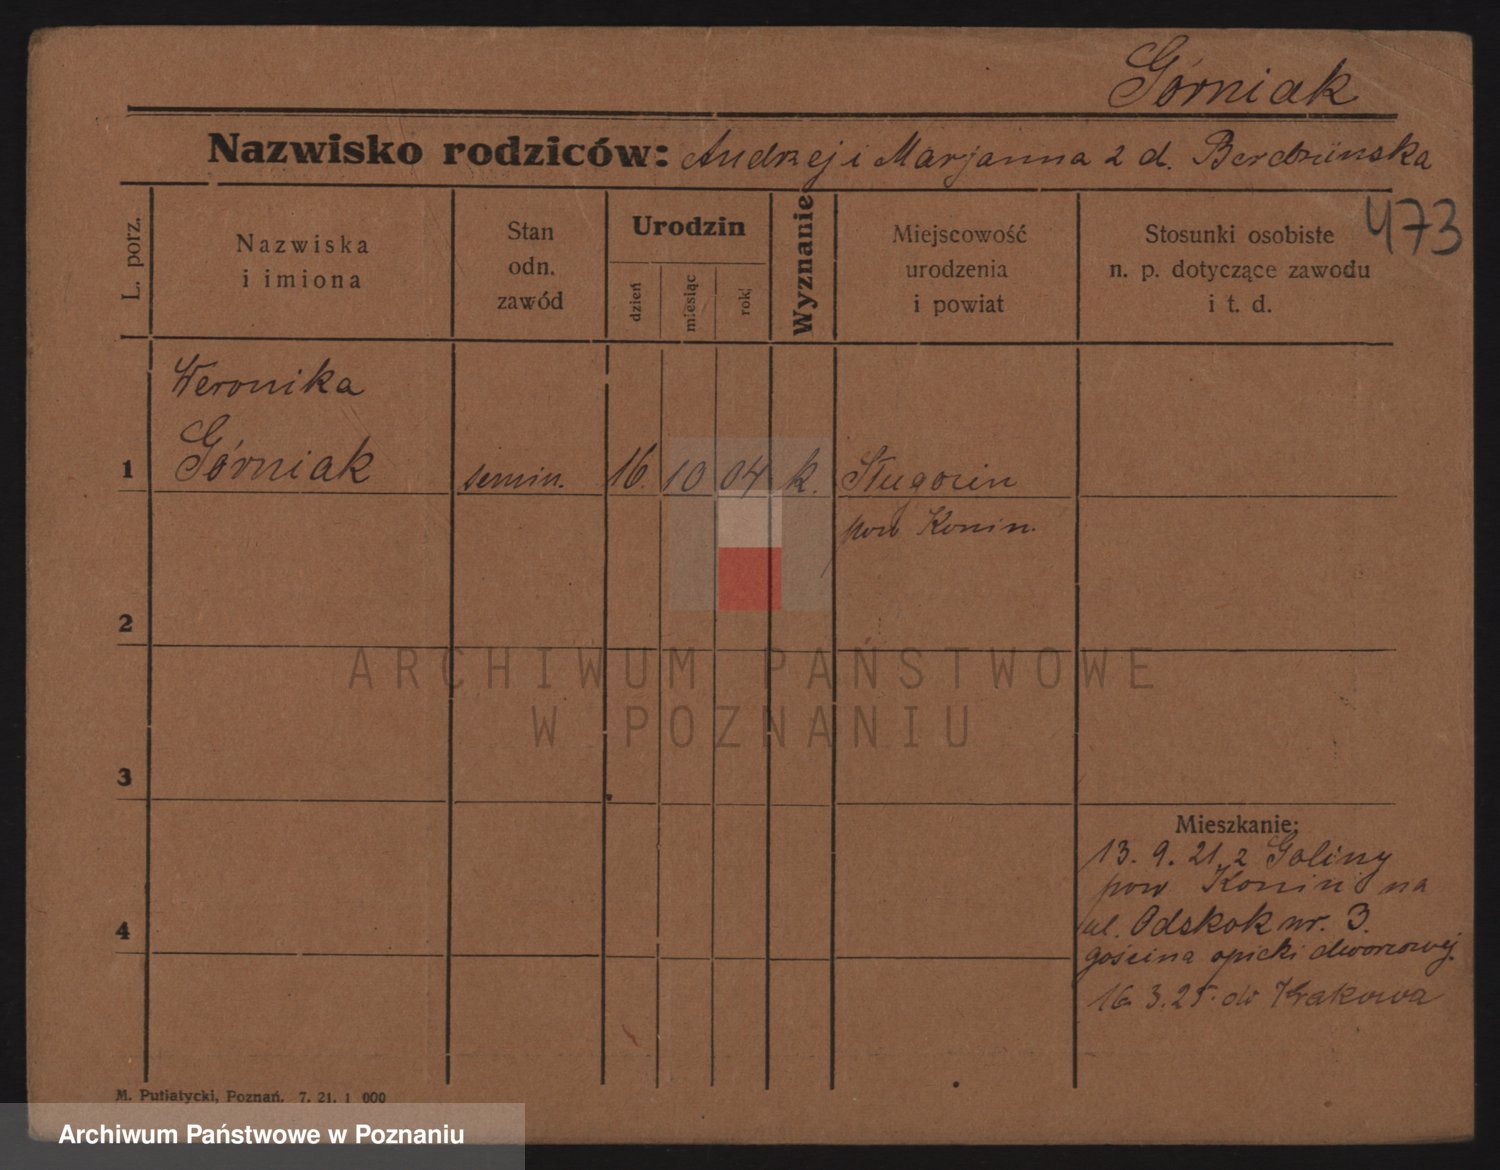 Górniak
Nazwisko rodziców: Andrzej i Marjanna z d.
473
L. porz.
Nazwiska
i imiona
Stan
odn.
zawód
Urodzin
dzień
miesiąc
rok
Wyznanie
Miejscowość
urodzenia
i powiat
Stosunki osobiste
n. p. dotyczące zawodu
i t. d.
Weronika
1 Górniak semin. 16. 10 04 k.
pow Konin.
2
3
4
Mieszkanie:
13. 9. 21. z Goliny
pow Konin na
ul. Odskok nr. 3.
gościna opieki dworcowej.
16. 3. 25. do Krakowa
M. Putiatycki, Poznań. 7. 21. 1 000
ARCHIWUM PAŃSTWOWE
W POZNANIU
Archiwum Państwowe w Poznaniu